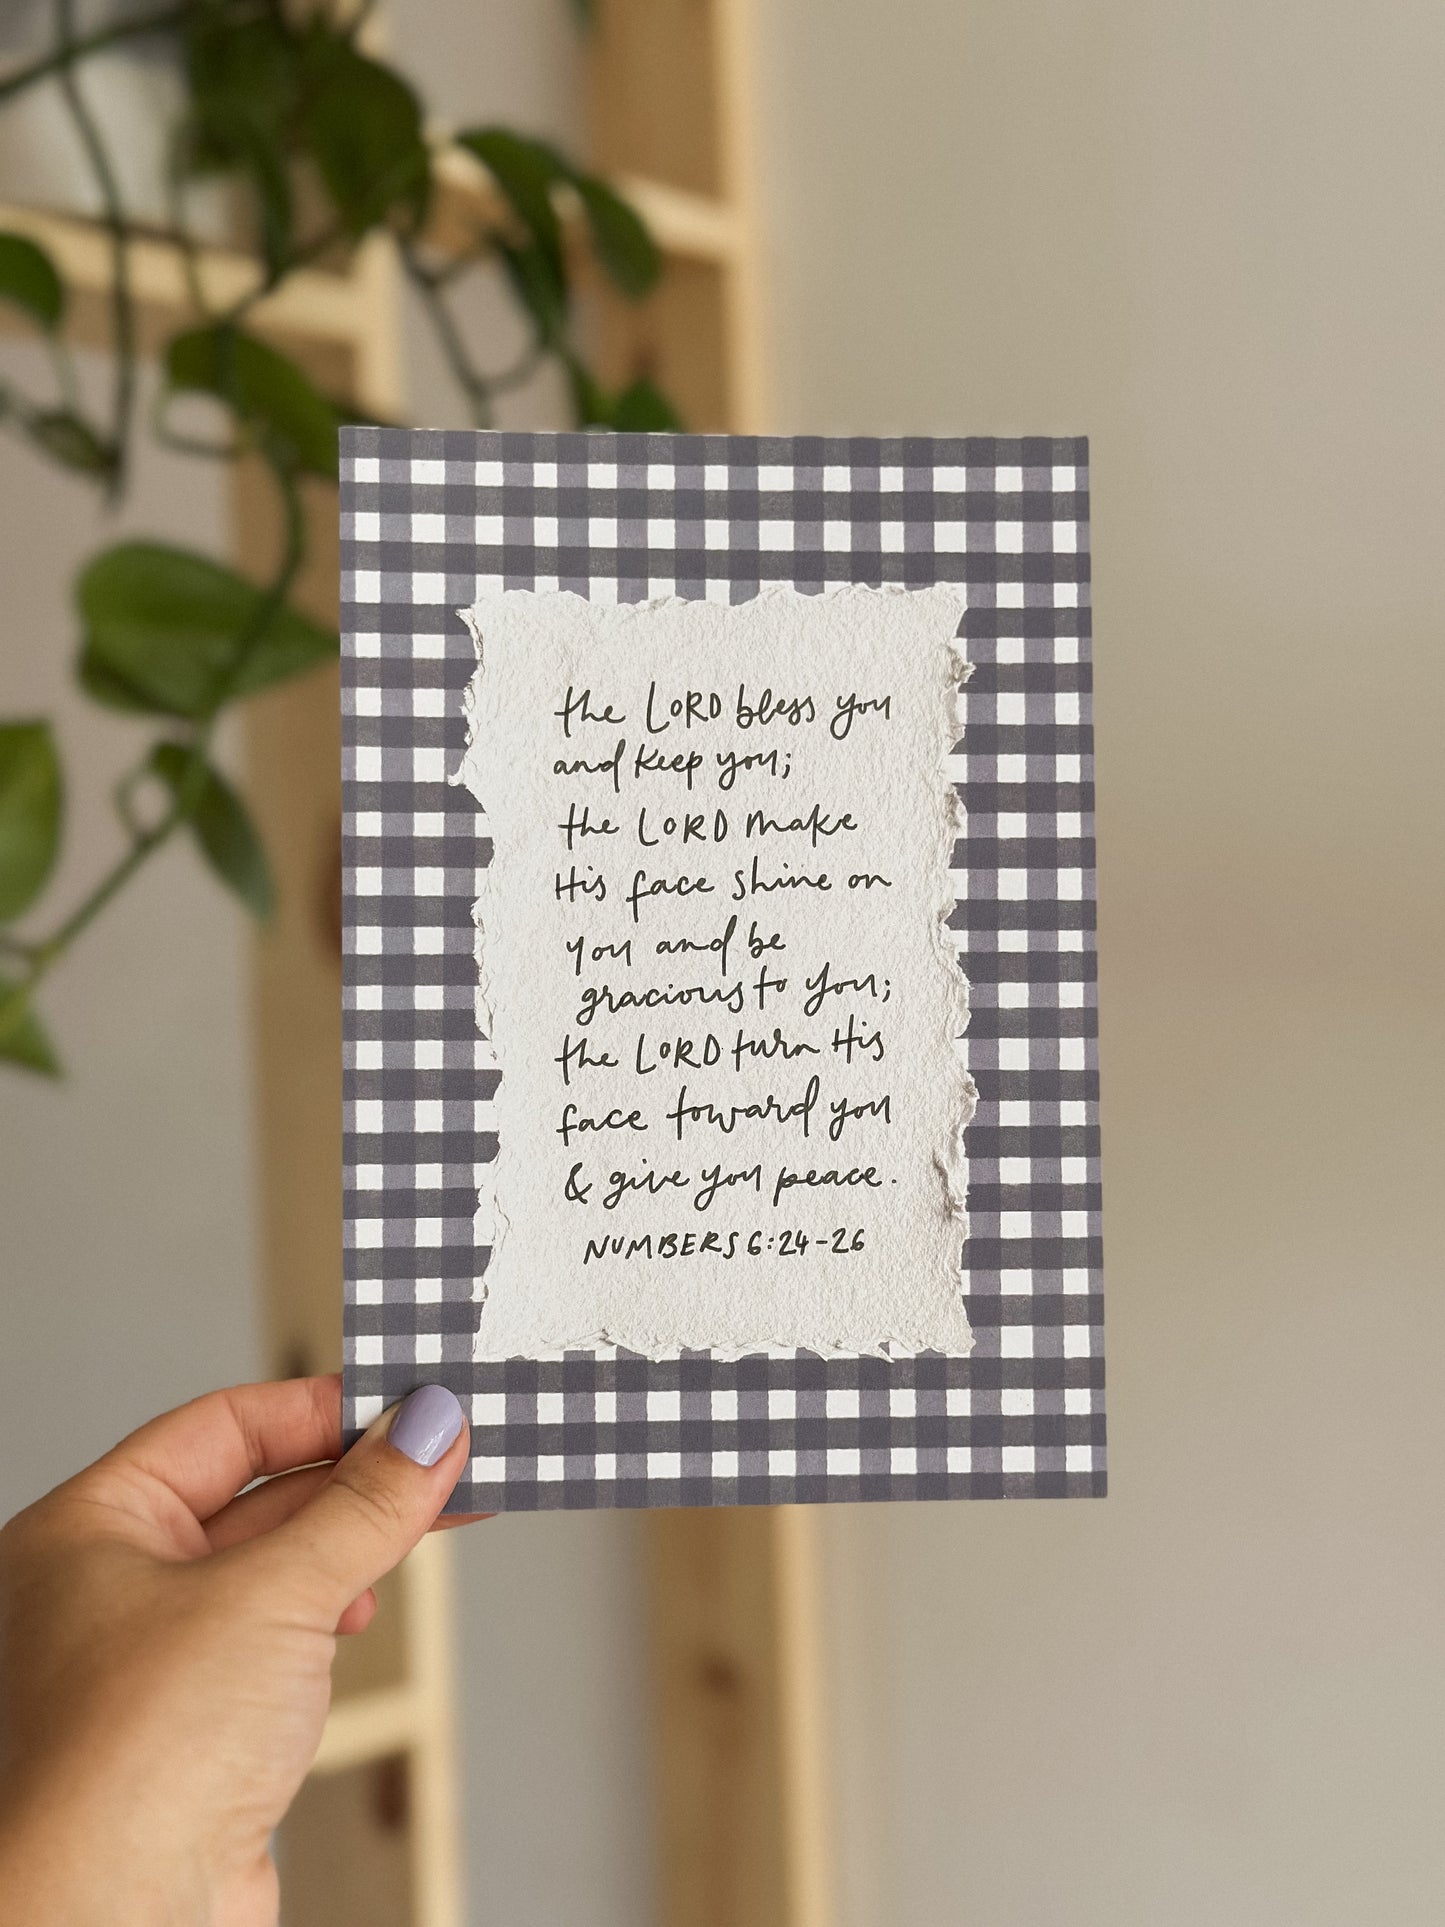 the LORD bless you
and keep you;
the LORD make
His face shine on
you and be
gracious to you;
the LORD turn His
face toward you
& give you peace.
NUMBERS 6:24-26